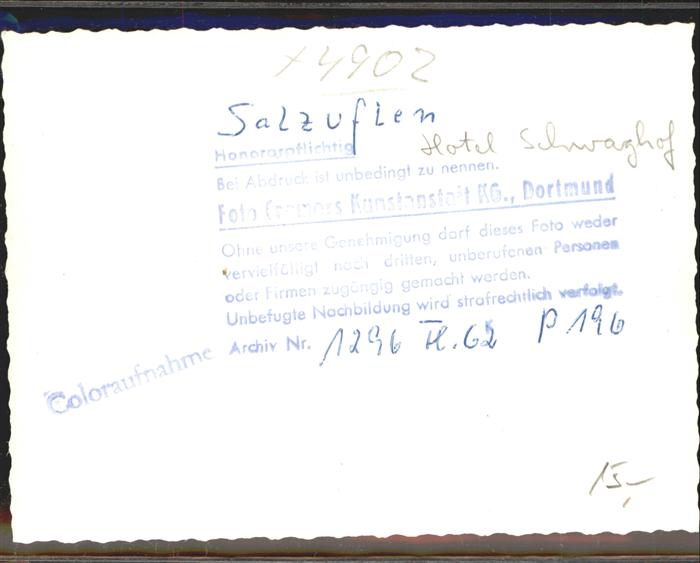 x4902
Salzuflen
Hotel Schwaghof
Honorarpflichtig
Bei Abdruck ist unbedingt zu nennen.
Foto Cramers Kunstanstalt KG., Dortmund
Ohne unsere Genehmigung darf dieses Foto weder
vervielfältigt noch dritten, unberufenen Personen
oder Firmen zugängig gemacht werden.
Unbefugte Nachbildung wird strafrechtlich verfolgt.
Archiv Nr. 1296 II.62 P 196
Coloraufnahme
15,-